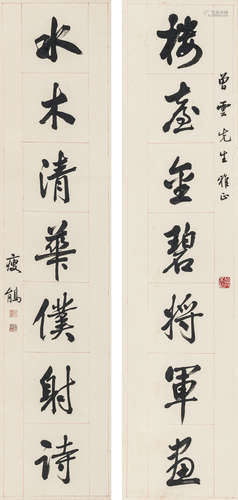 曾雲先生雅正
樓臺金碧將軍畫
水木清華僕射詩
瘦鵑